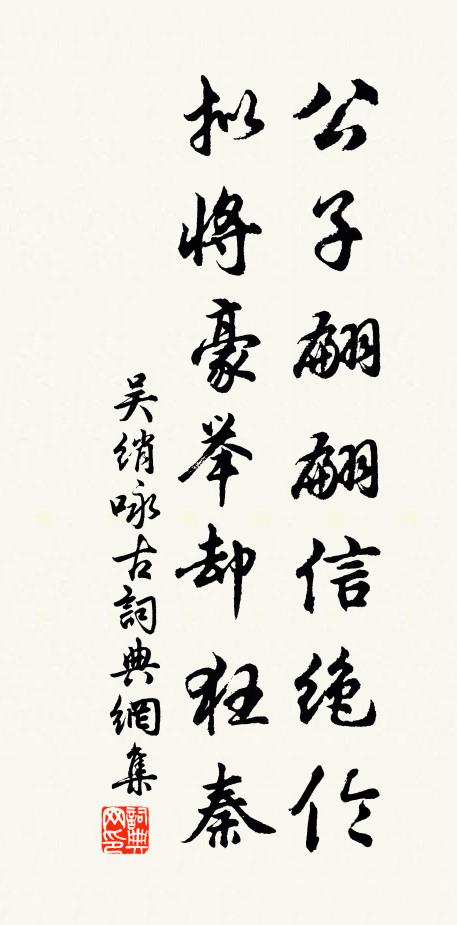 公子翩翩信绝伦
拟将豪举却狂秦
吴绡咏古詞典網集
詞典网印